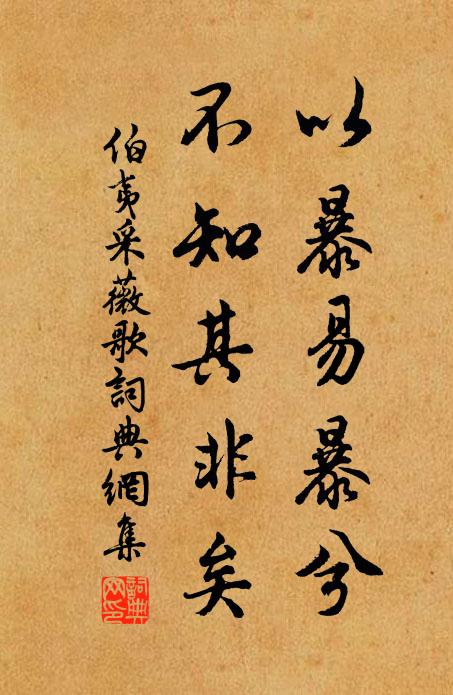 以暴易暴兮
不知其非矣
伯夷采薇歌詞典網集
詞典
网印